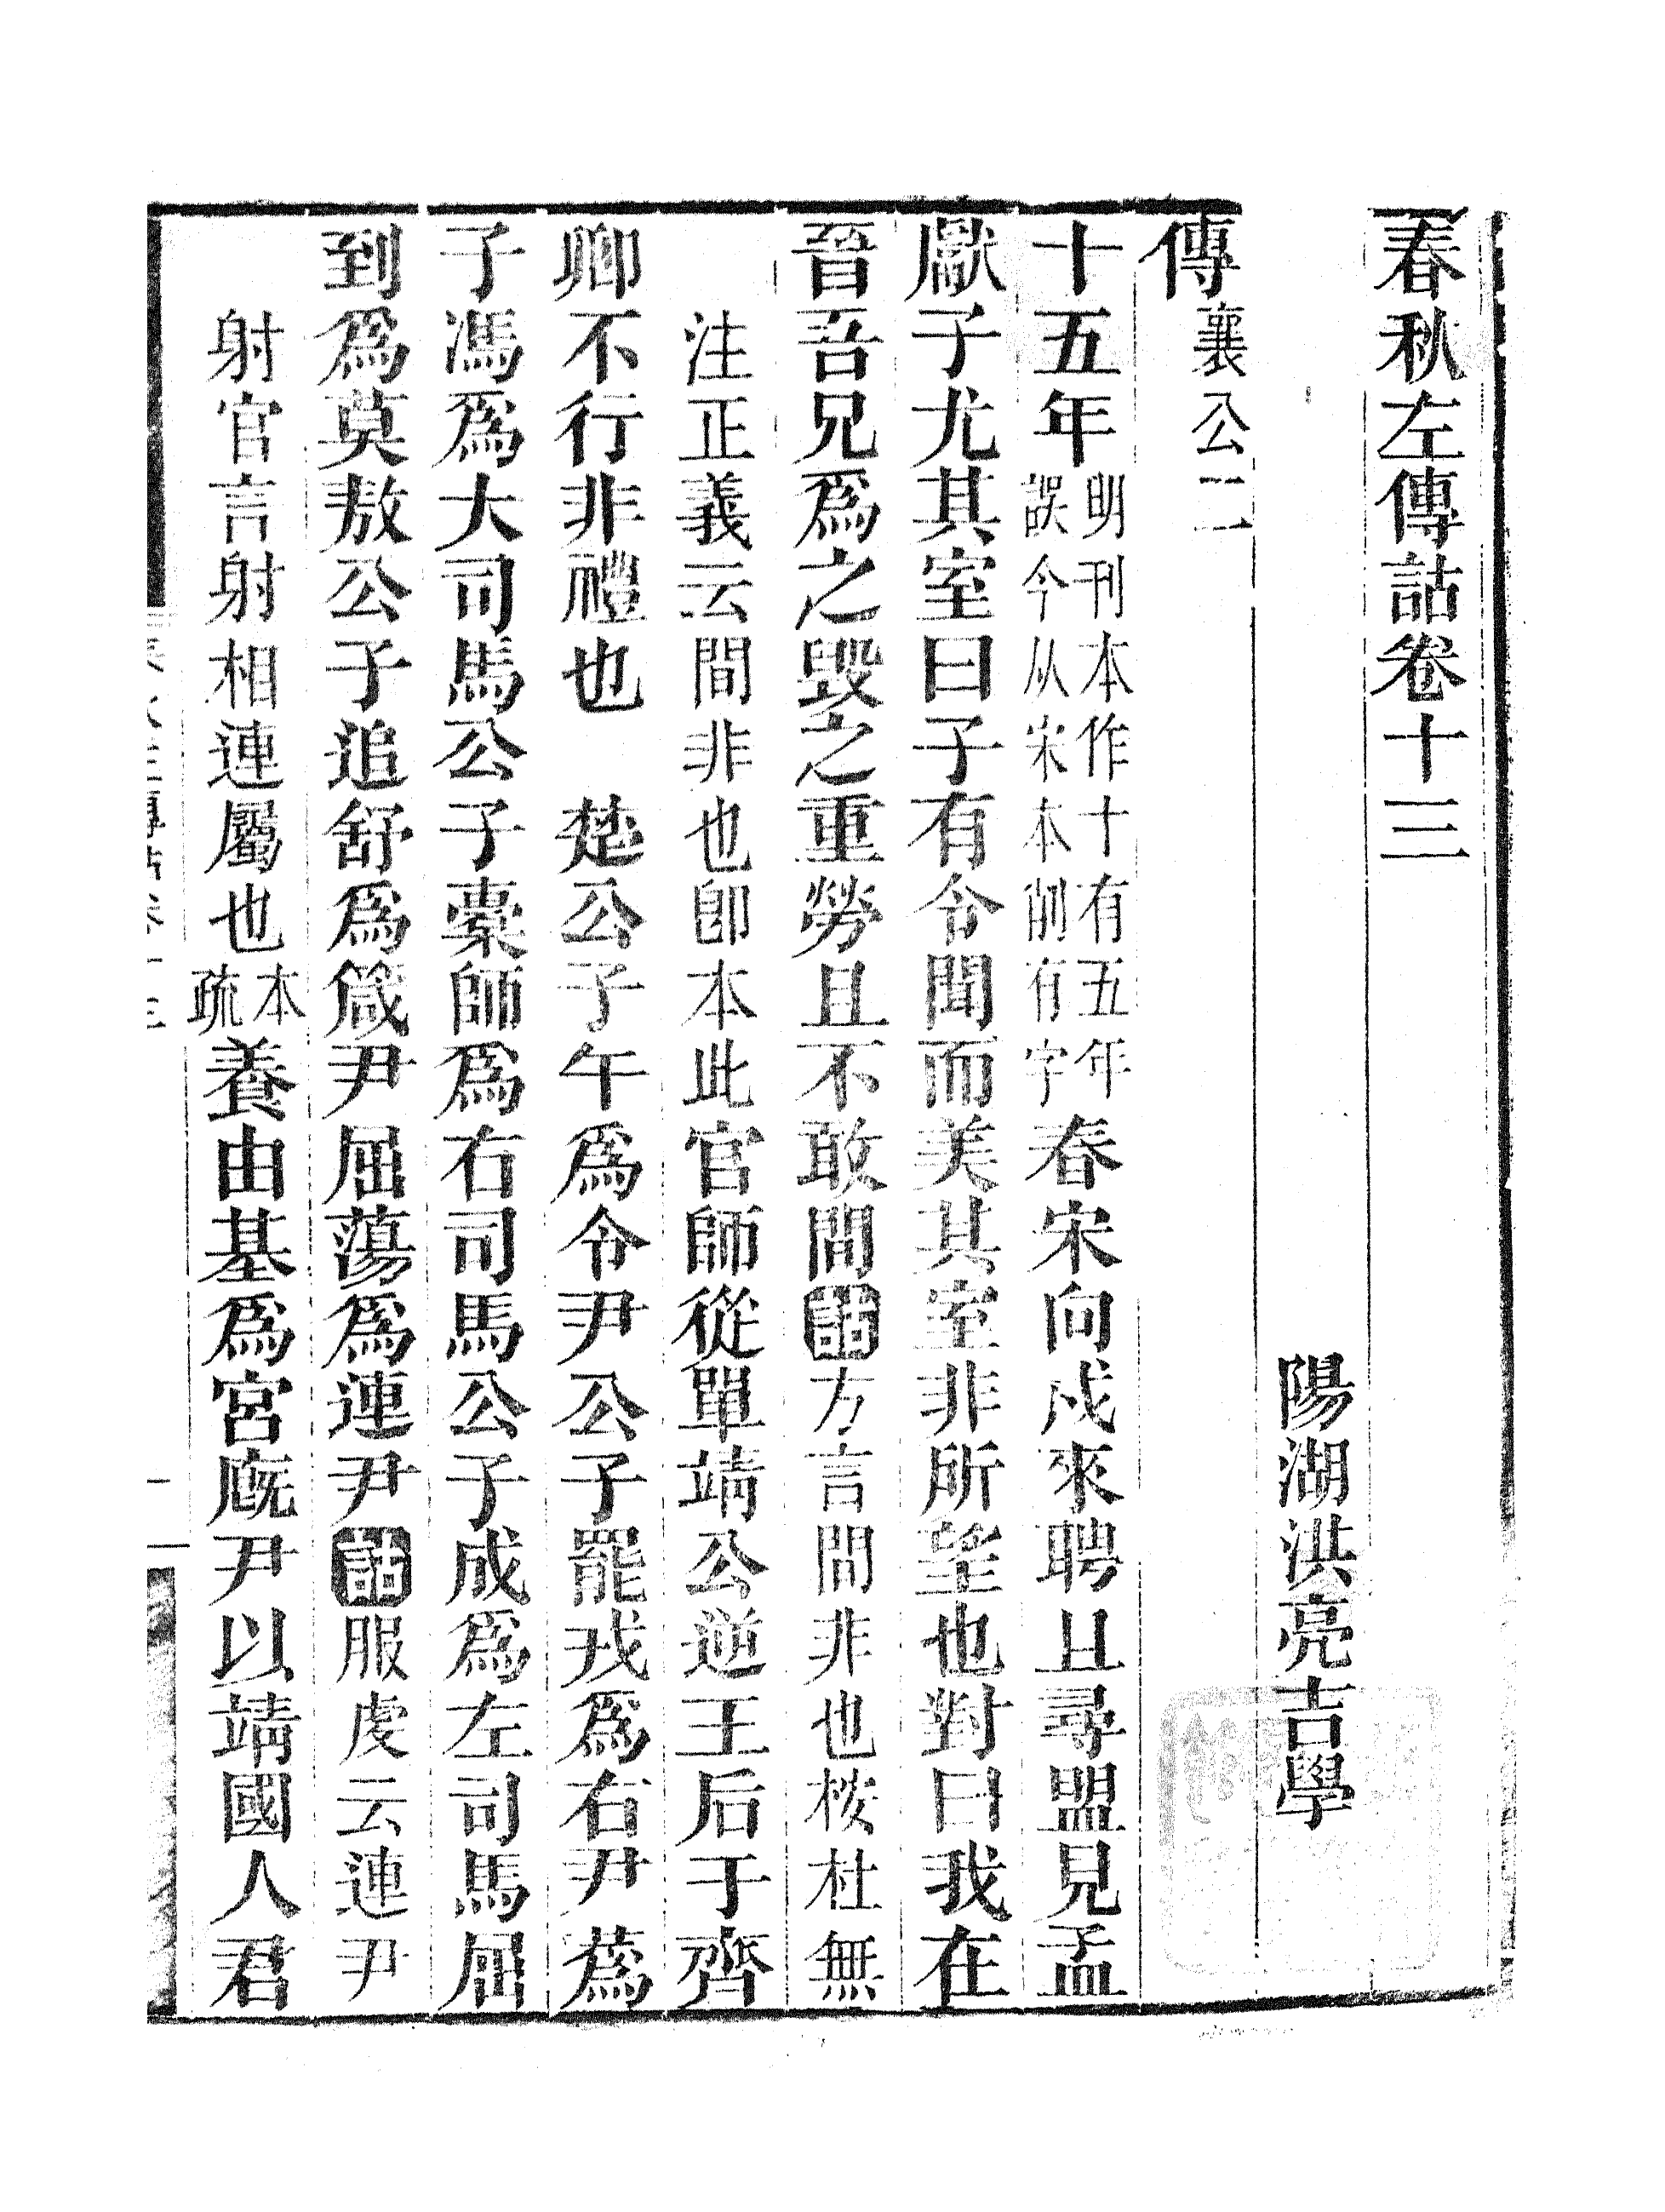 春秋左傳詁卷十三
陽湖洪亮吉學
傳襄公二
十五年明刊本作十有五年誤今从宋本削有字春宋向戍來聘且尋盟見孟
獻子尤其室曰子有令聞而美其室非所望也對曰我在
晉吾兄爲之毀之重勞且不敢間詁方言間非也桉杜無
注正義云間非也卽本此官師從單靖公逆王后于齊
卿不行非禮也　楚公子午爲令尹公子罷戎爲右尹蔿
子馮爲大司馬公子橐師爲右司馬公子成爲左司馬屈
到爲莫敖公子追舒爲箴尹屈蕩爲連尹詁服虔云連尹
射官言射相連屬也本疏養由基爲宮廄尹以靖國人君